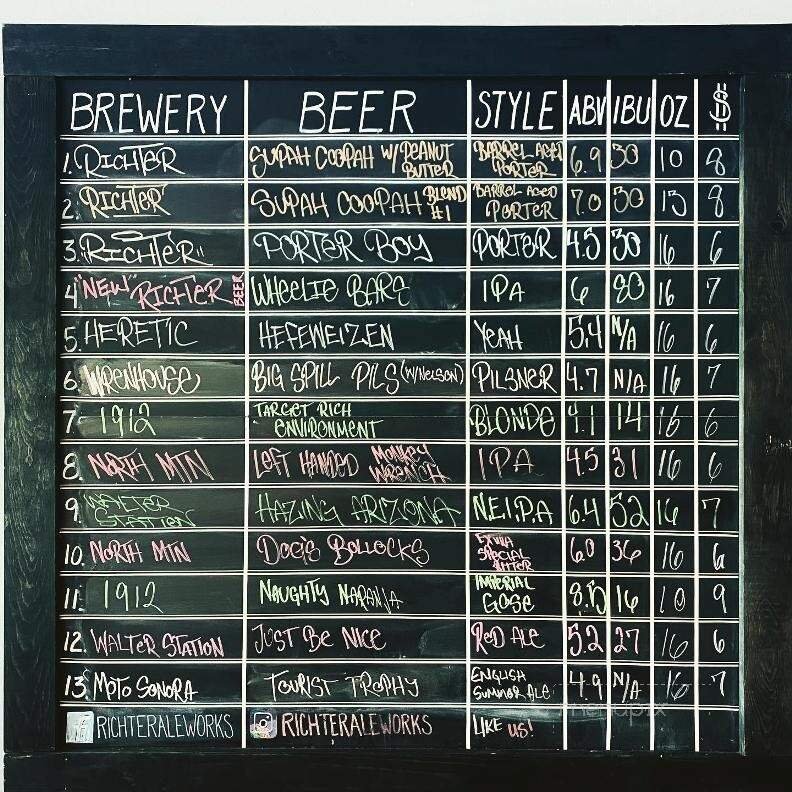 BREWERY BEER STYLE ABV IBU OZ $
1. RICHTER SUPAH COOPAH W/ PEANUT BUTTER BARREL AGED PORTER 6.9 30 10 8
2. RICHTER SUPAH COOPAH BLEND #1 BARREL AGED PORTER 7.0 30 13 8
3. RICHTER PORTER BOY PORTER 4.5 30 16 6
4 "NEW" RICHTER BEER WHEELIE BARS IPA 6 80 16 7
5. HERETIC HEFEWEIZEN YEAH 5.4 N/A 16 6
6 WRENHOUSE BIG SPILL PILS (W/NELSON) PILSNER 4.7 N/A 16 7
7 1912 TARGET RICH ENVIRONMENT BLONDE 4.1 14 16 6
8. NORTH MTN LEFT HANDED MONKEY WRENCH IPA 4.5 31 16 6
9. WALTER STATION HAZING ARIZONA N.E.I.P.A 6.4 52 16 7
10. NORTH MTN DOG'S BOLLOCKS EXTRA SPECIAL BITTER 6.0 36 16 6
11. 1912 NAUGHTY NARANJA IMPERIAL GOSE 8.5 16 10 9
12. WALTER STATION JUST BE NICE RED ALE 5.2 27 16 6
13. MOTO SONORA TOURIST TROPHY ENGLISH SUMMER ALE 4.9 N/A 16 7
RICHTERALEWORKS RICHTERALEWORKS LIKE US!
menupix